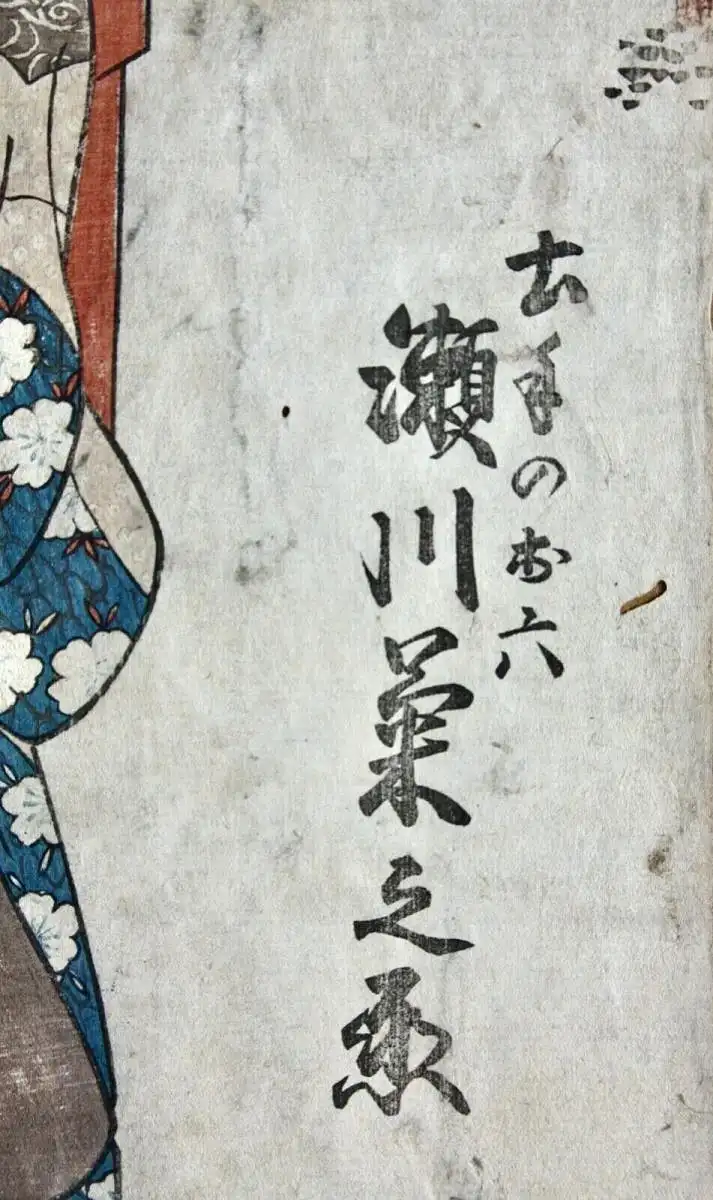 土手のお六
瀬川菊之丞